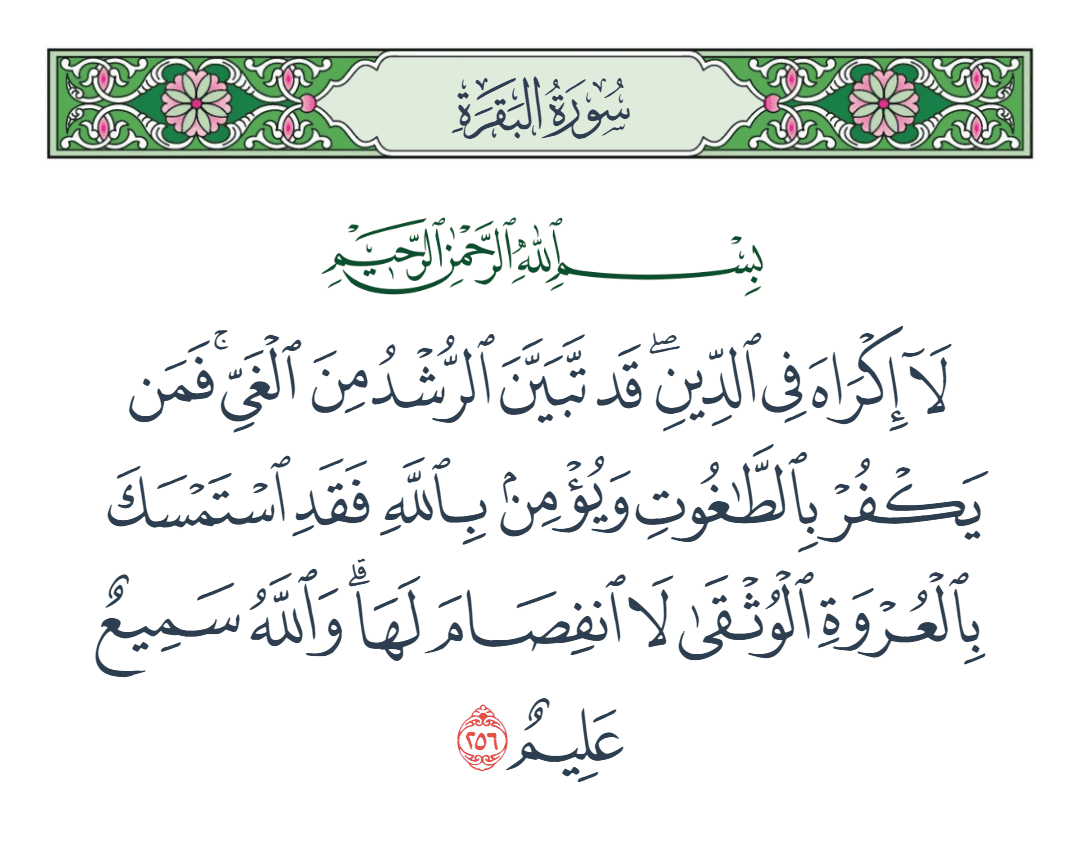 سُورَةُ البَقَرَةِ
بِسْمِ ٱللَّهِ ٱلرَّحْمَٰنِ ٱلرَّحِيمِ
لَآ إِكْرَاهَ فِى ٱلدِّينِ ۖ قَد تَّبَيَّنَ ٱلرُّشْدُ مِنَ ٱلْغَىِّ ۚ فَمَن
يَكْفُرْ بِٱلطَّٰغُوتِ وَيُؤْمِنۢ بِٱللَّهِ فَقَدِ ٱسْتَمْسَكَ
بِٱلْعُرْوَةِ ٱلْوُثْقَىٰ لَا ٱنفِصَامَ لَهَا ۗ وَٱللَّهُ سَمِيعٌ
عَلِيمٌ ٢٥٦